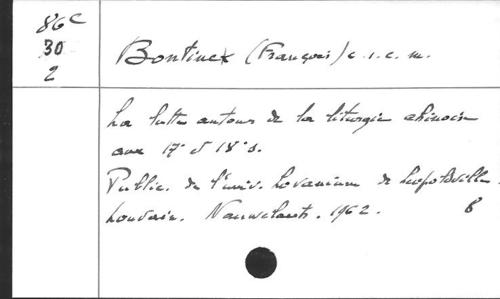 86C
30
2
Bontinck (François) c.i.c.m.
La lutte autour de la liturgie chinoise
aux 17e et 18e s.
Public. de l'univ. Lovanium de Léopoldville.
Louvain. Nauwelaerts. 1962. 8